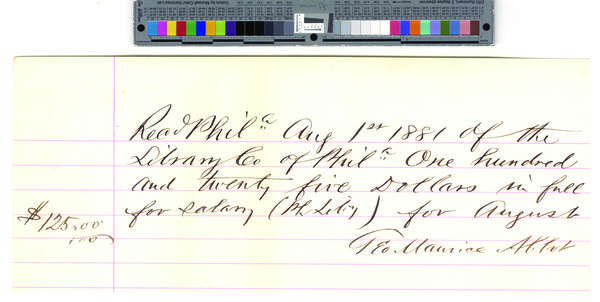 Recd Phila Aug 1st 1881 of the
Library Co of Phila One hundred
and twenty five Dollars in full
for salary (Ph Liby) for August
$125.00
Geo Maurice Abbot